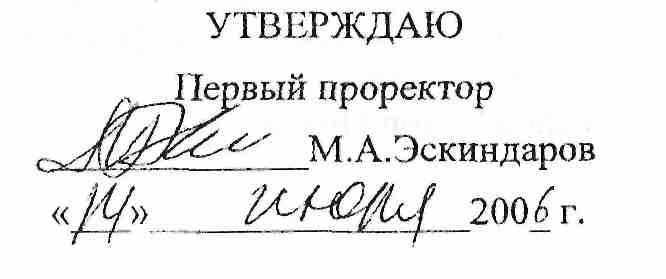 УТВЕРЖДАЮ
Первый проректор
М.А.Эскиндаров
«14» июня 2006 г.